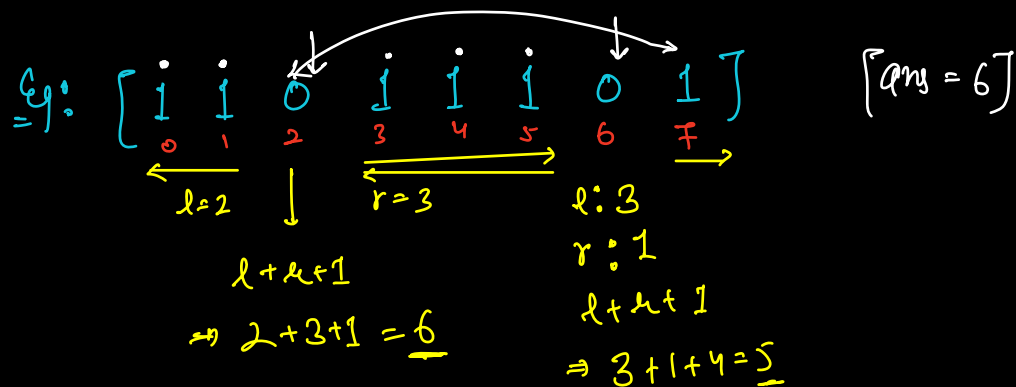 Eg: [ 1 1 0 1 1 1 0 1 ] [ans = 6]
0 1 2 3 4 5 6 7
l=2 r=3 l: 3
r: 1
l+r+1 l+r+1
⇒ 2+3+1 = 6 ⇒ 3+1+4=5